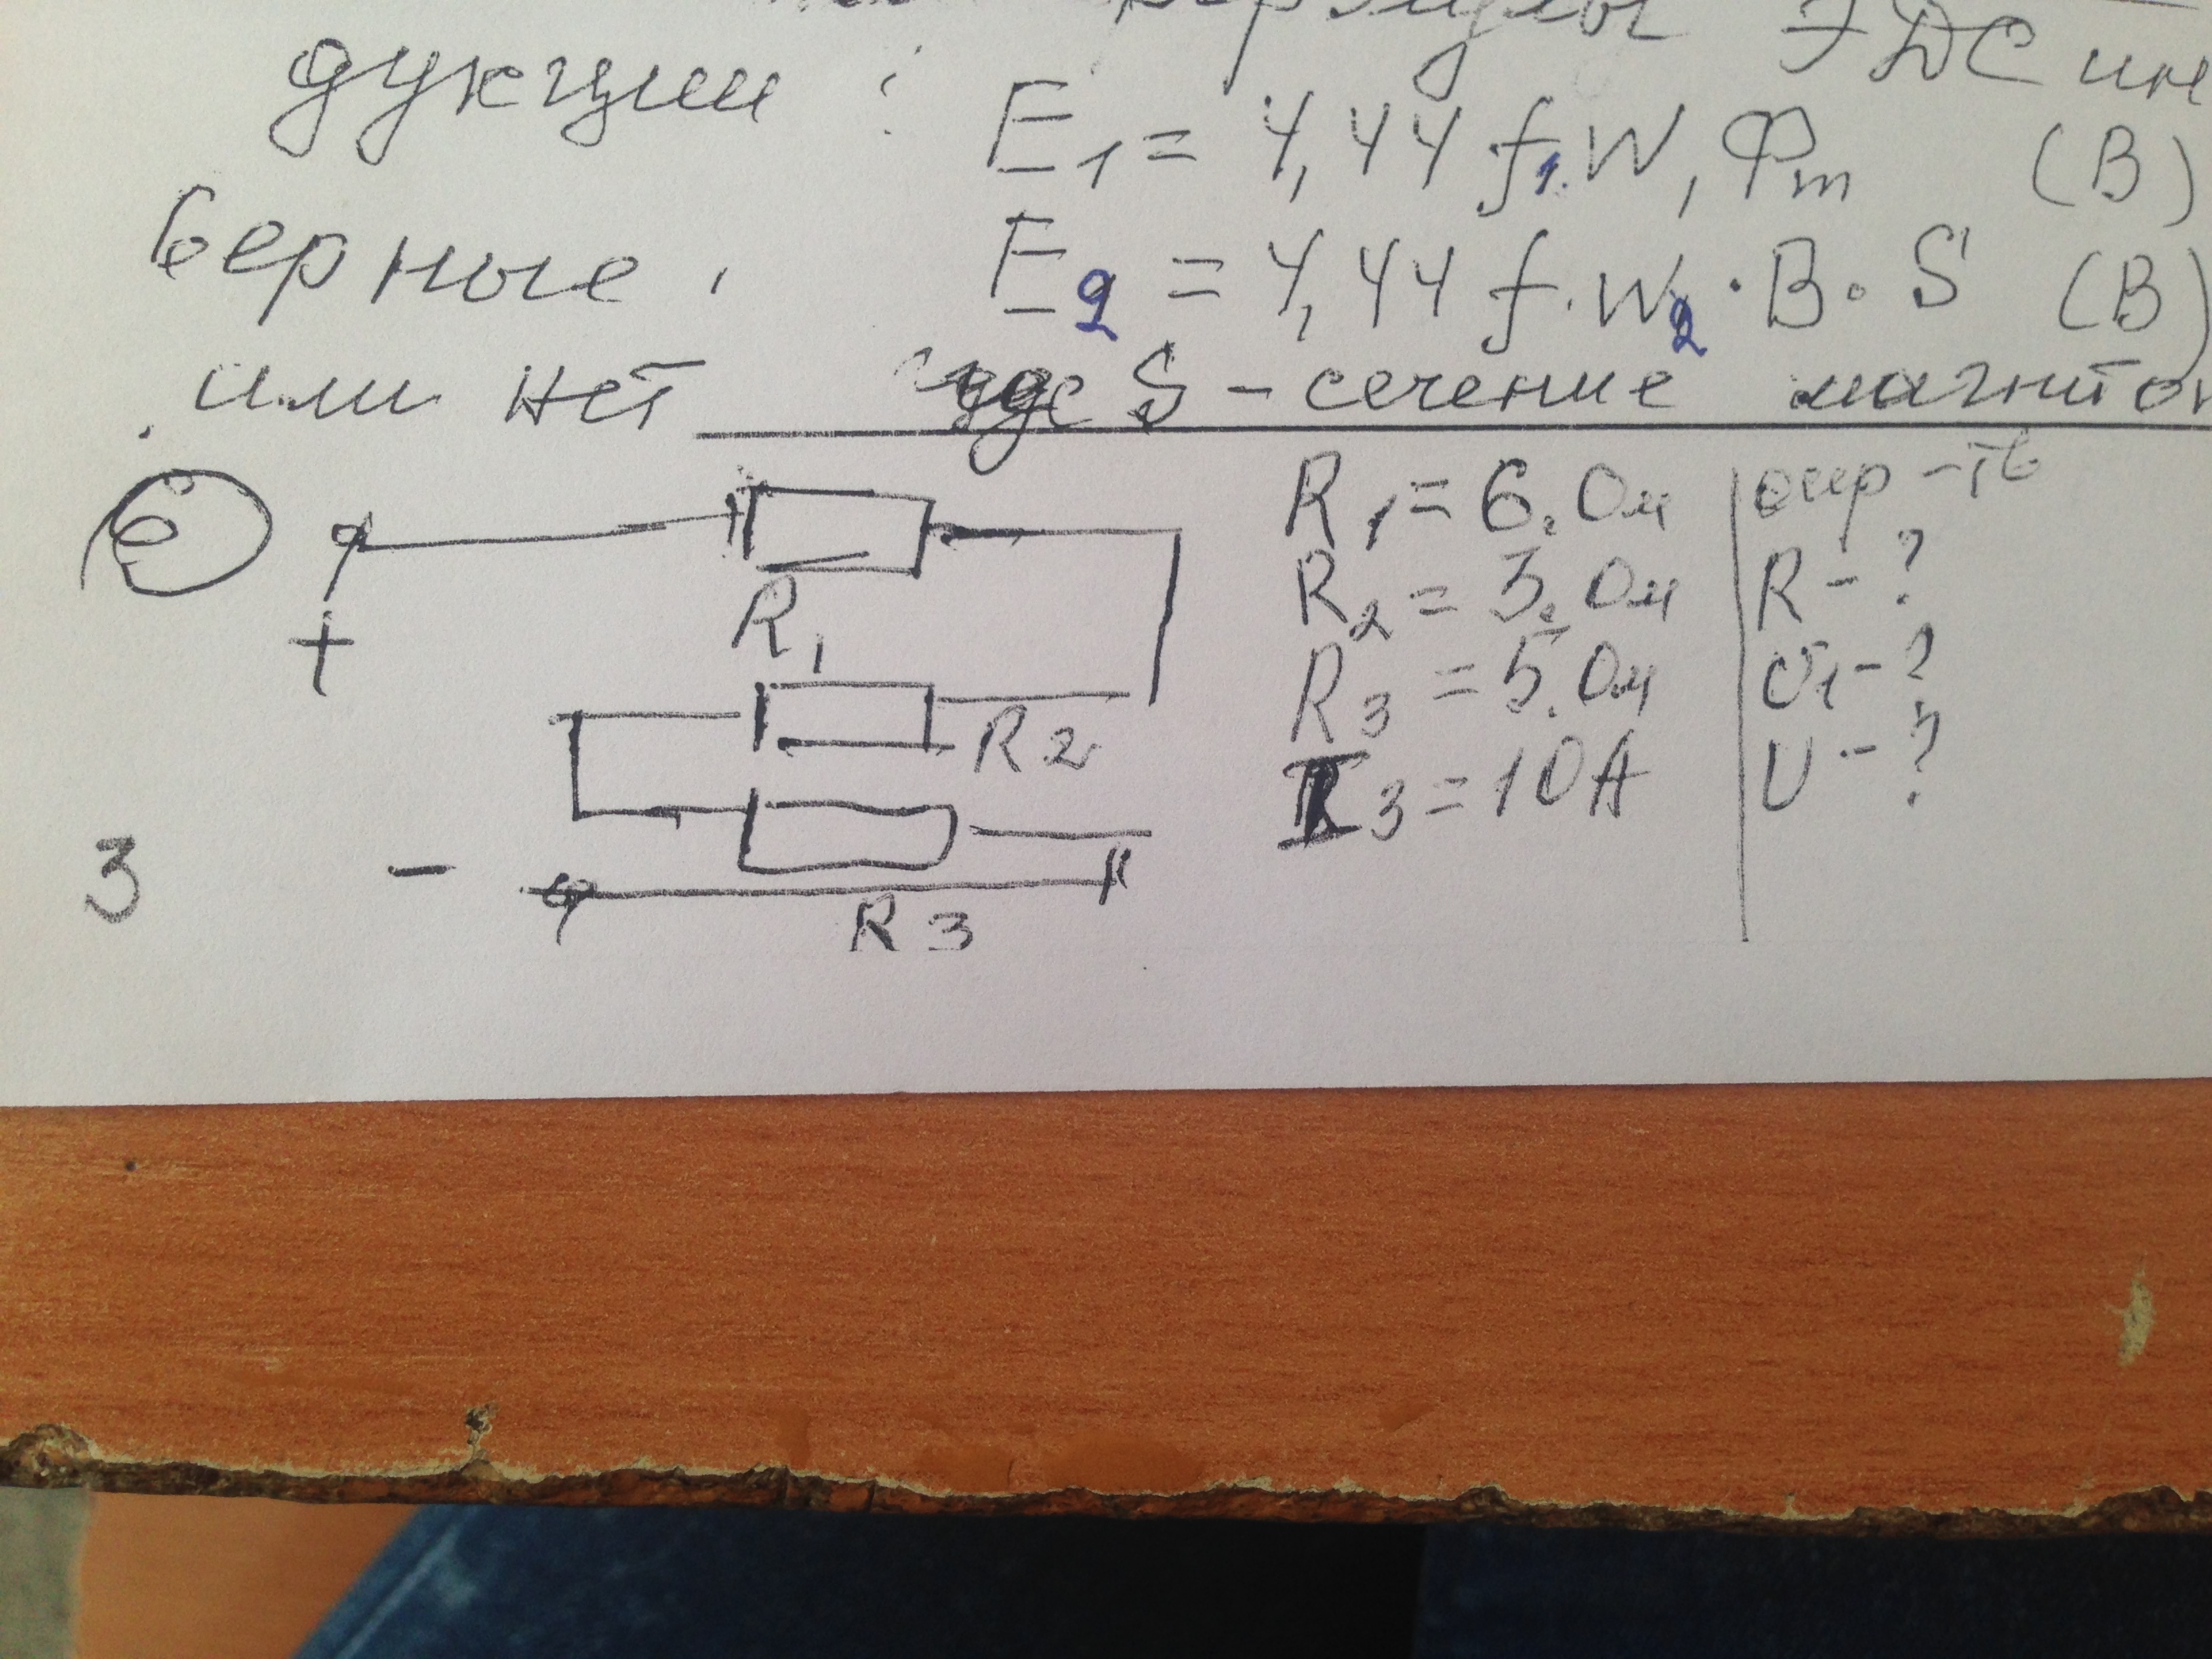 формулы ЭДС ин
дукции :
E1 = 4,44 f1. W1 Фm (В)
верные,
E2 = 4,44 f. W2 · B · S (В)
или нет где S - сечение магнитоп
+
R1
R2
R3
-
3
R1 = 6. Ом
R2 = 3. Ом
R3 = 5. Ом
I3 = 10А
опр-ть
R - ?
U1 - ?
U - ?